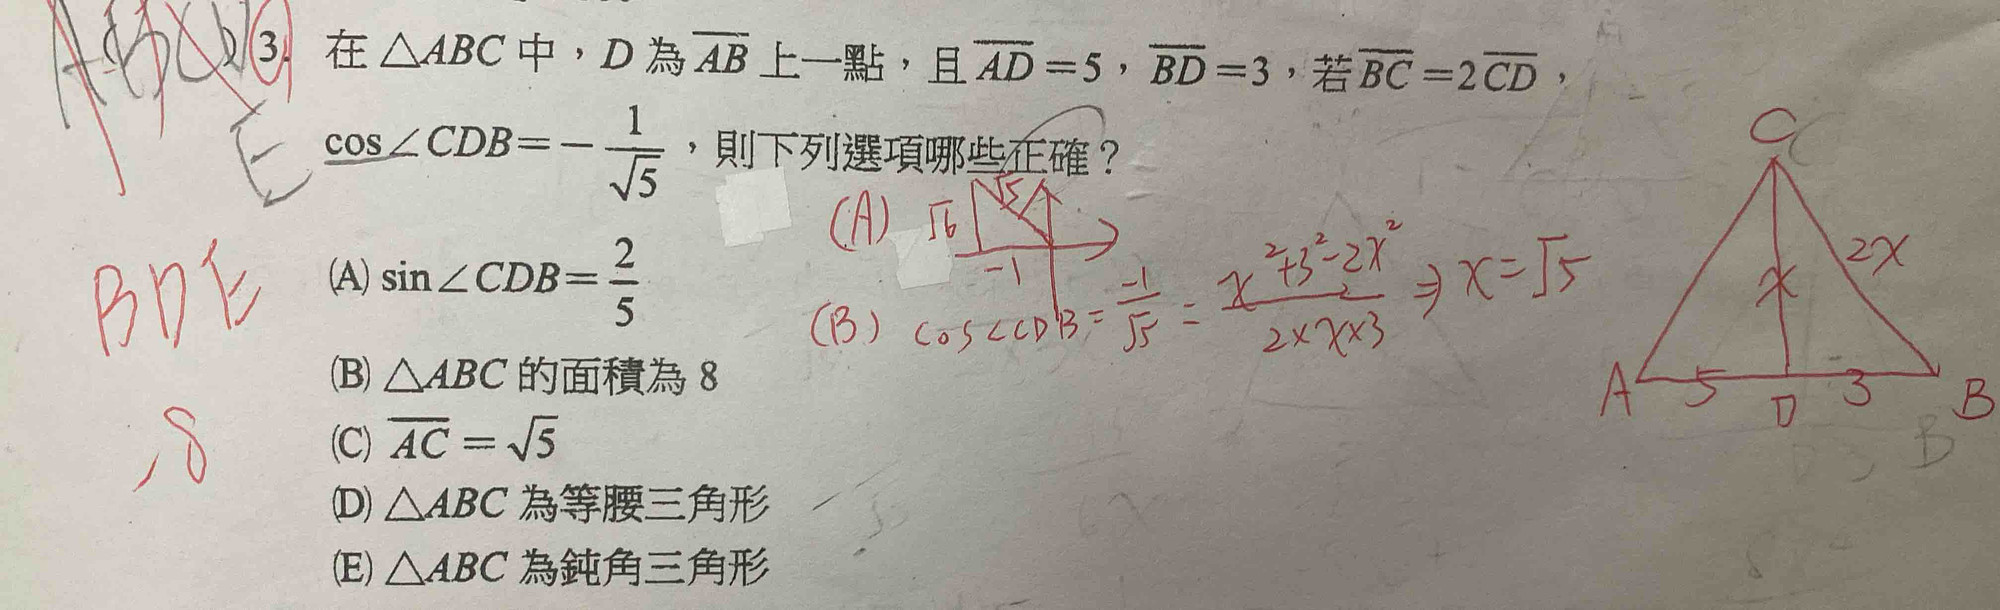 3. 在 △ABC 中，D 為 AB 上一點，且 AD = 5，BD = 3，若 BC = 2CD，
cos∠CDB = - 1/√5，則下列選項哪些正確？
E
(A) sin∠CDB = 2/5
(B) △ABC 的面積為 8
(C) AC = √5
(D) △ABC 為等腰三角形
(E) △ABC 為鈍角三角形
BDE
(A) √6 √5 -1
(B) cos∠CDB = -1/√5 = x²+3²-2x²/2×x×3 ⇒ x = √5
C
x 2x
A 5 D 3 B
B